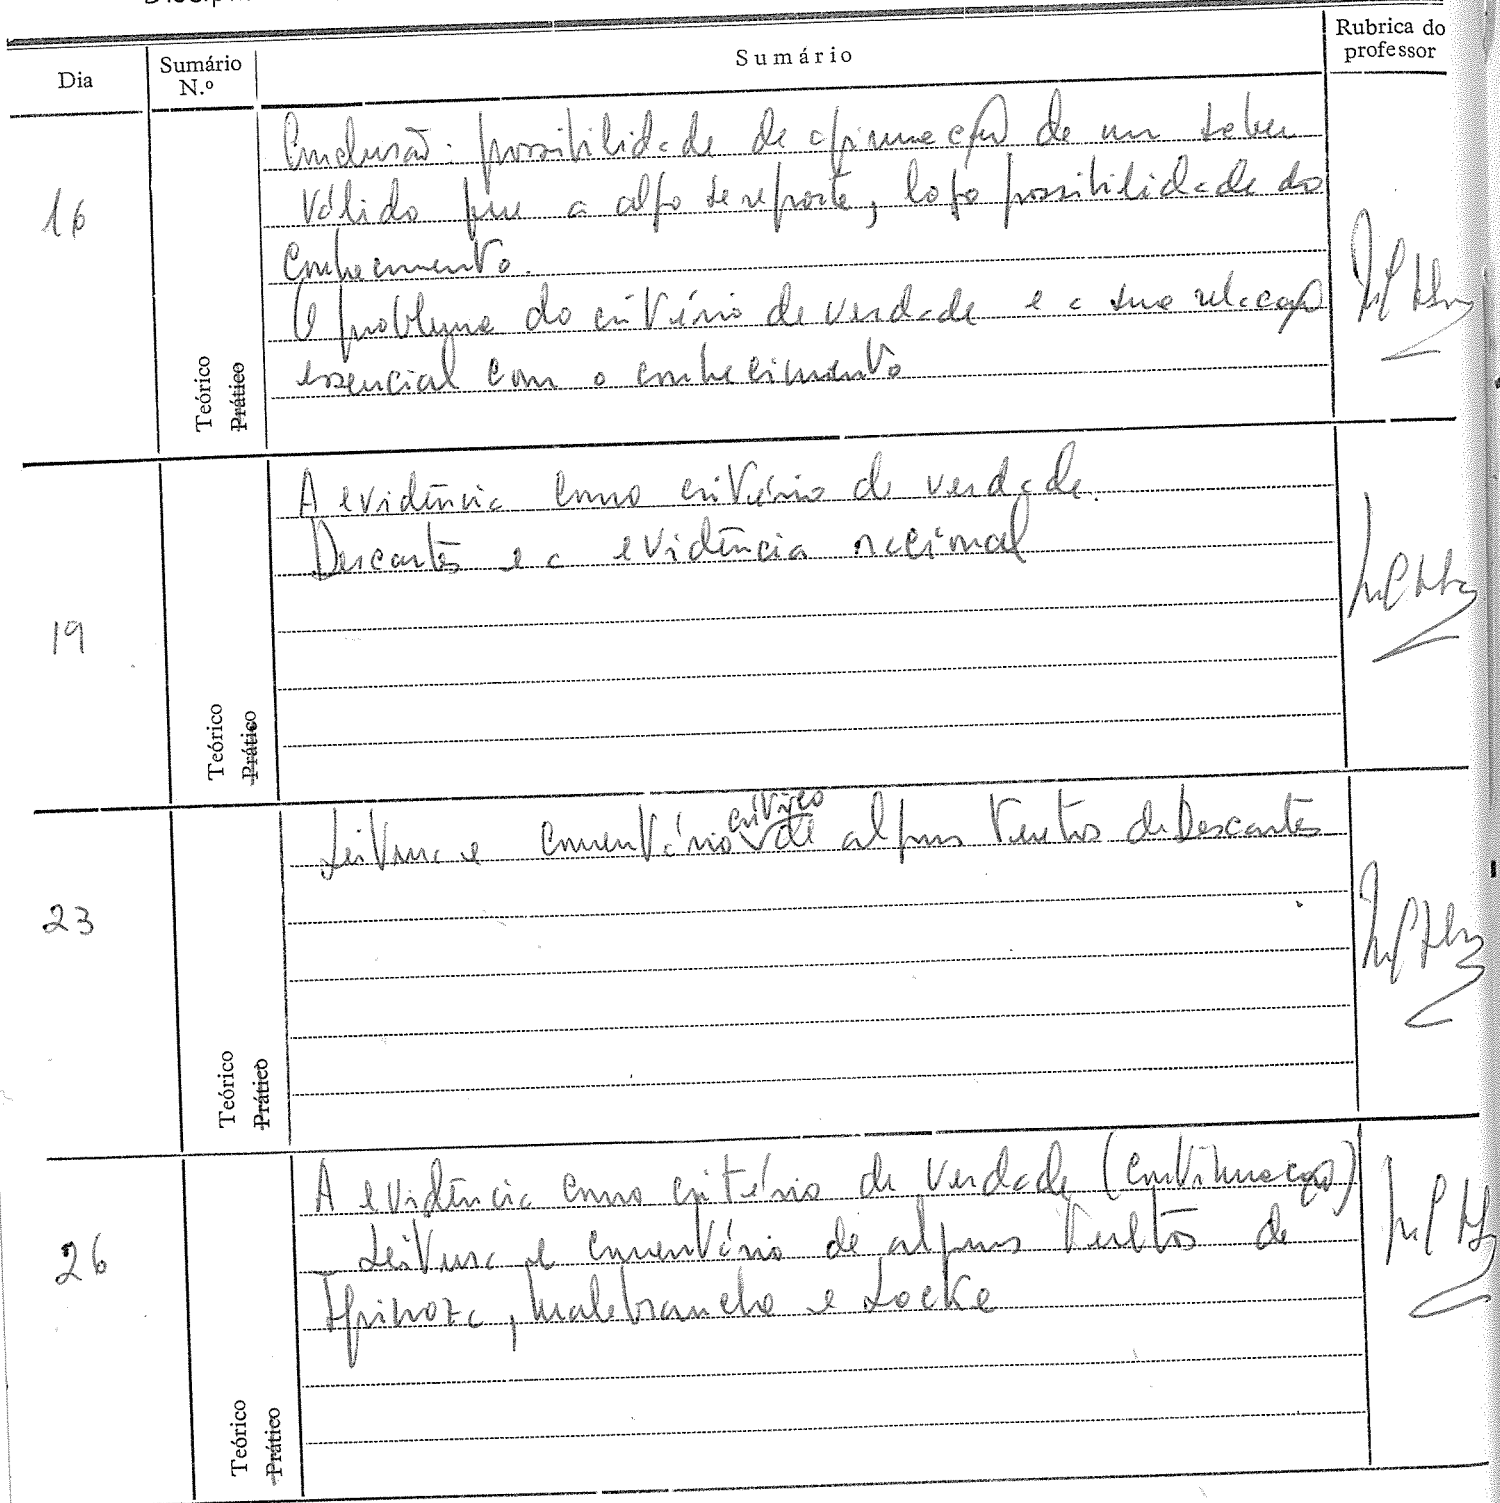 Dia
Sumário
N.º
Sumário
Rubrica do
professor
16
Teórico
Prático
Conclusão: possibilidade de afirmação de um saber
válido que a algo se reporte, logo possibilidade do
conhecimento.
O problema do critério de verdade e a sua relação
essencial com o conhecimento
19
Teórico
Prático
A evidência como critério de verdade.
Descartes e a evidência racional
23
Teórico
Prático
Leitura e comentário crítico de alguns textos de Descartes
26
Teórico
Prático
A evidência como critério de verdade (continuação)
_ Leitura e comentário de alguns textos de
Spinoza, Malebranche e Locke